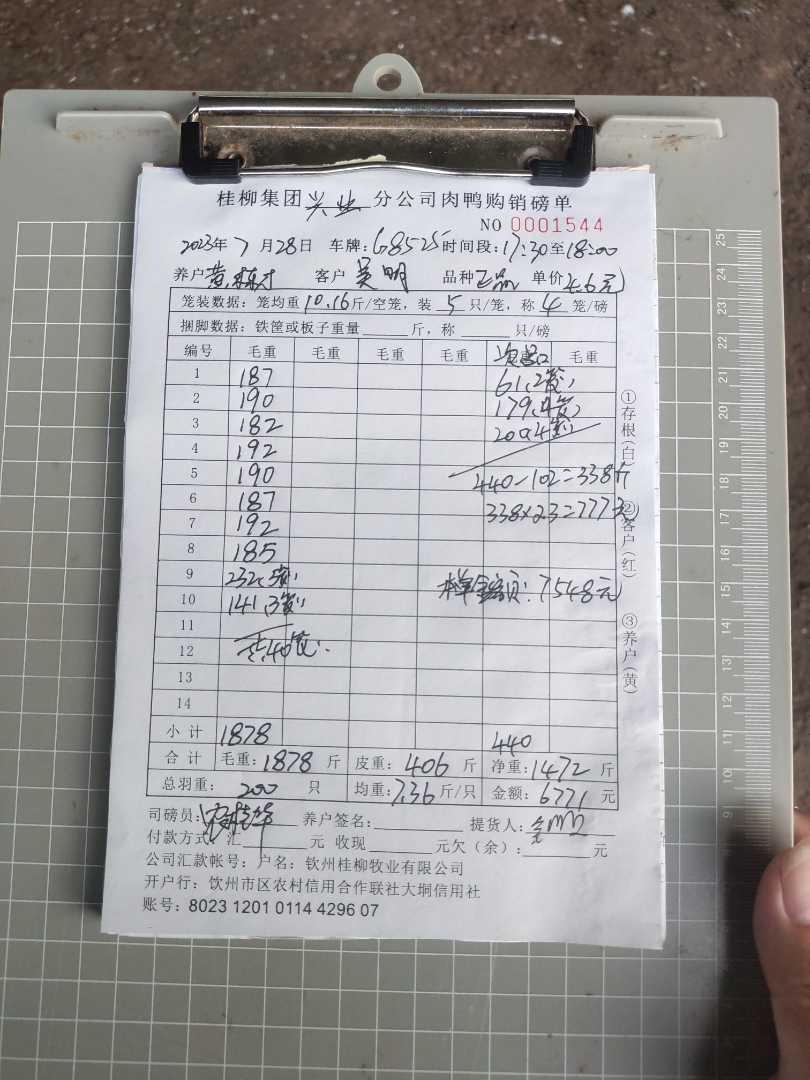 桂柳集团 兴业 分公司肉鸭购销磅单
NO 0001544
2023年 7 月 28 日 车牌: G8525 时间段: 17:30 至 18:00
养户 黄 才 客户 吴明 品种 正品 单价 4.6元
笼装数据: 笼均重 10.16 斤/空笼, 装 5 只/笼, 称 4 笼/磅
捆脚数据: 铁筐或板子重量 斤, 称 只/磅
编号 毛重 毛重 毛重 毛重 毛重
1 187 61.(2笼)
2 190 179.(4笼)
3 182 200.(4笼)
4 192
5 190 440-102=338斤
6 187 338×2.3=777元
7 192
8 185
9 232(5笼) 本单金额: 7548元
10 141(3笼)
11
12 共40笼
13
14
小计 1878 440
合计 毛重: 1878 斤 皮重: 406 斤 净重: 1472 斤
总羽重: 200 只 均重: 7.36 斤/只 金额: 6771 元
司磅员: 养户签名: 提货人:
付款方式: 汇 元 收现 元欠(余): 元
公司汇款帐号: 户名: 钦州桂柳牧业有限公司
开户行: 钦州市区农村信用合作联社大垌信用社
账号: 8023 1201 0114 4296 07
①存根(白) ②客户(红) ③养户(黄)
25
22
21
20
19
18
17
16
15
14
13
12
11
10
9